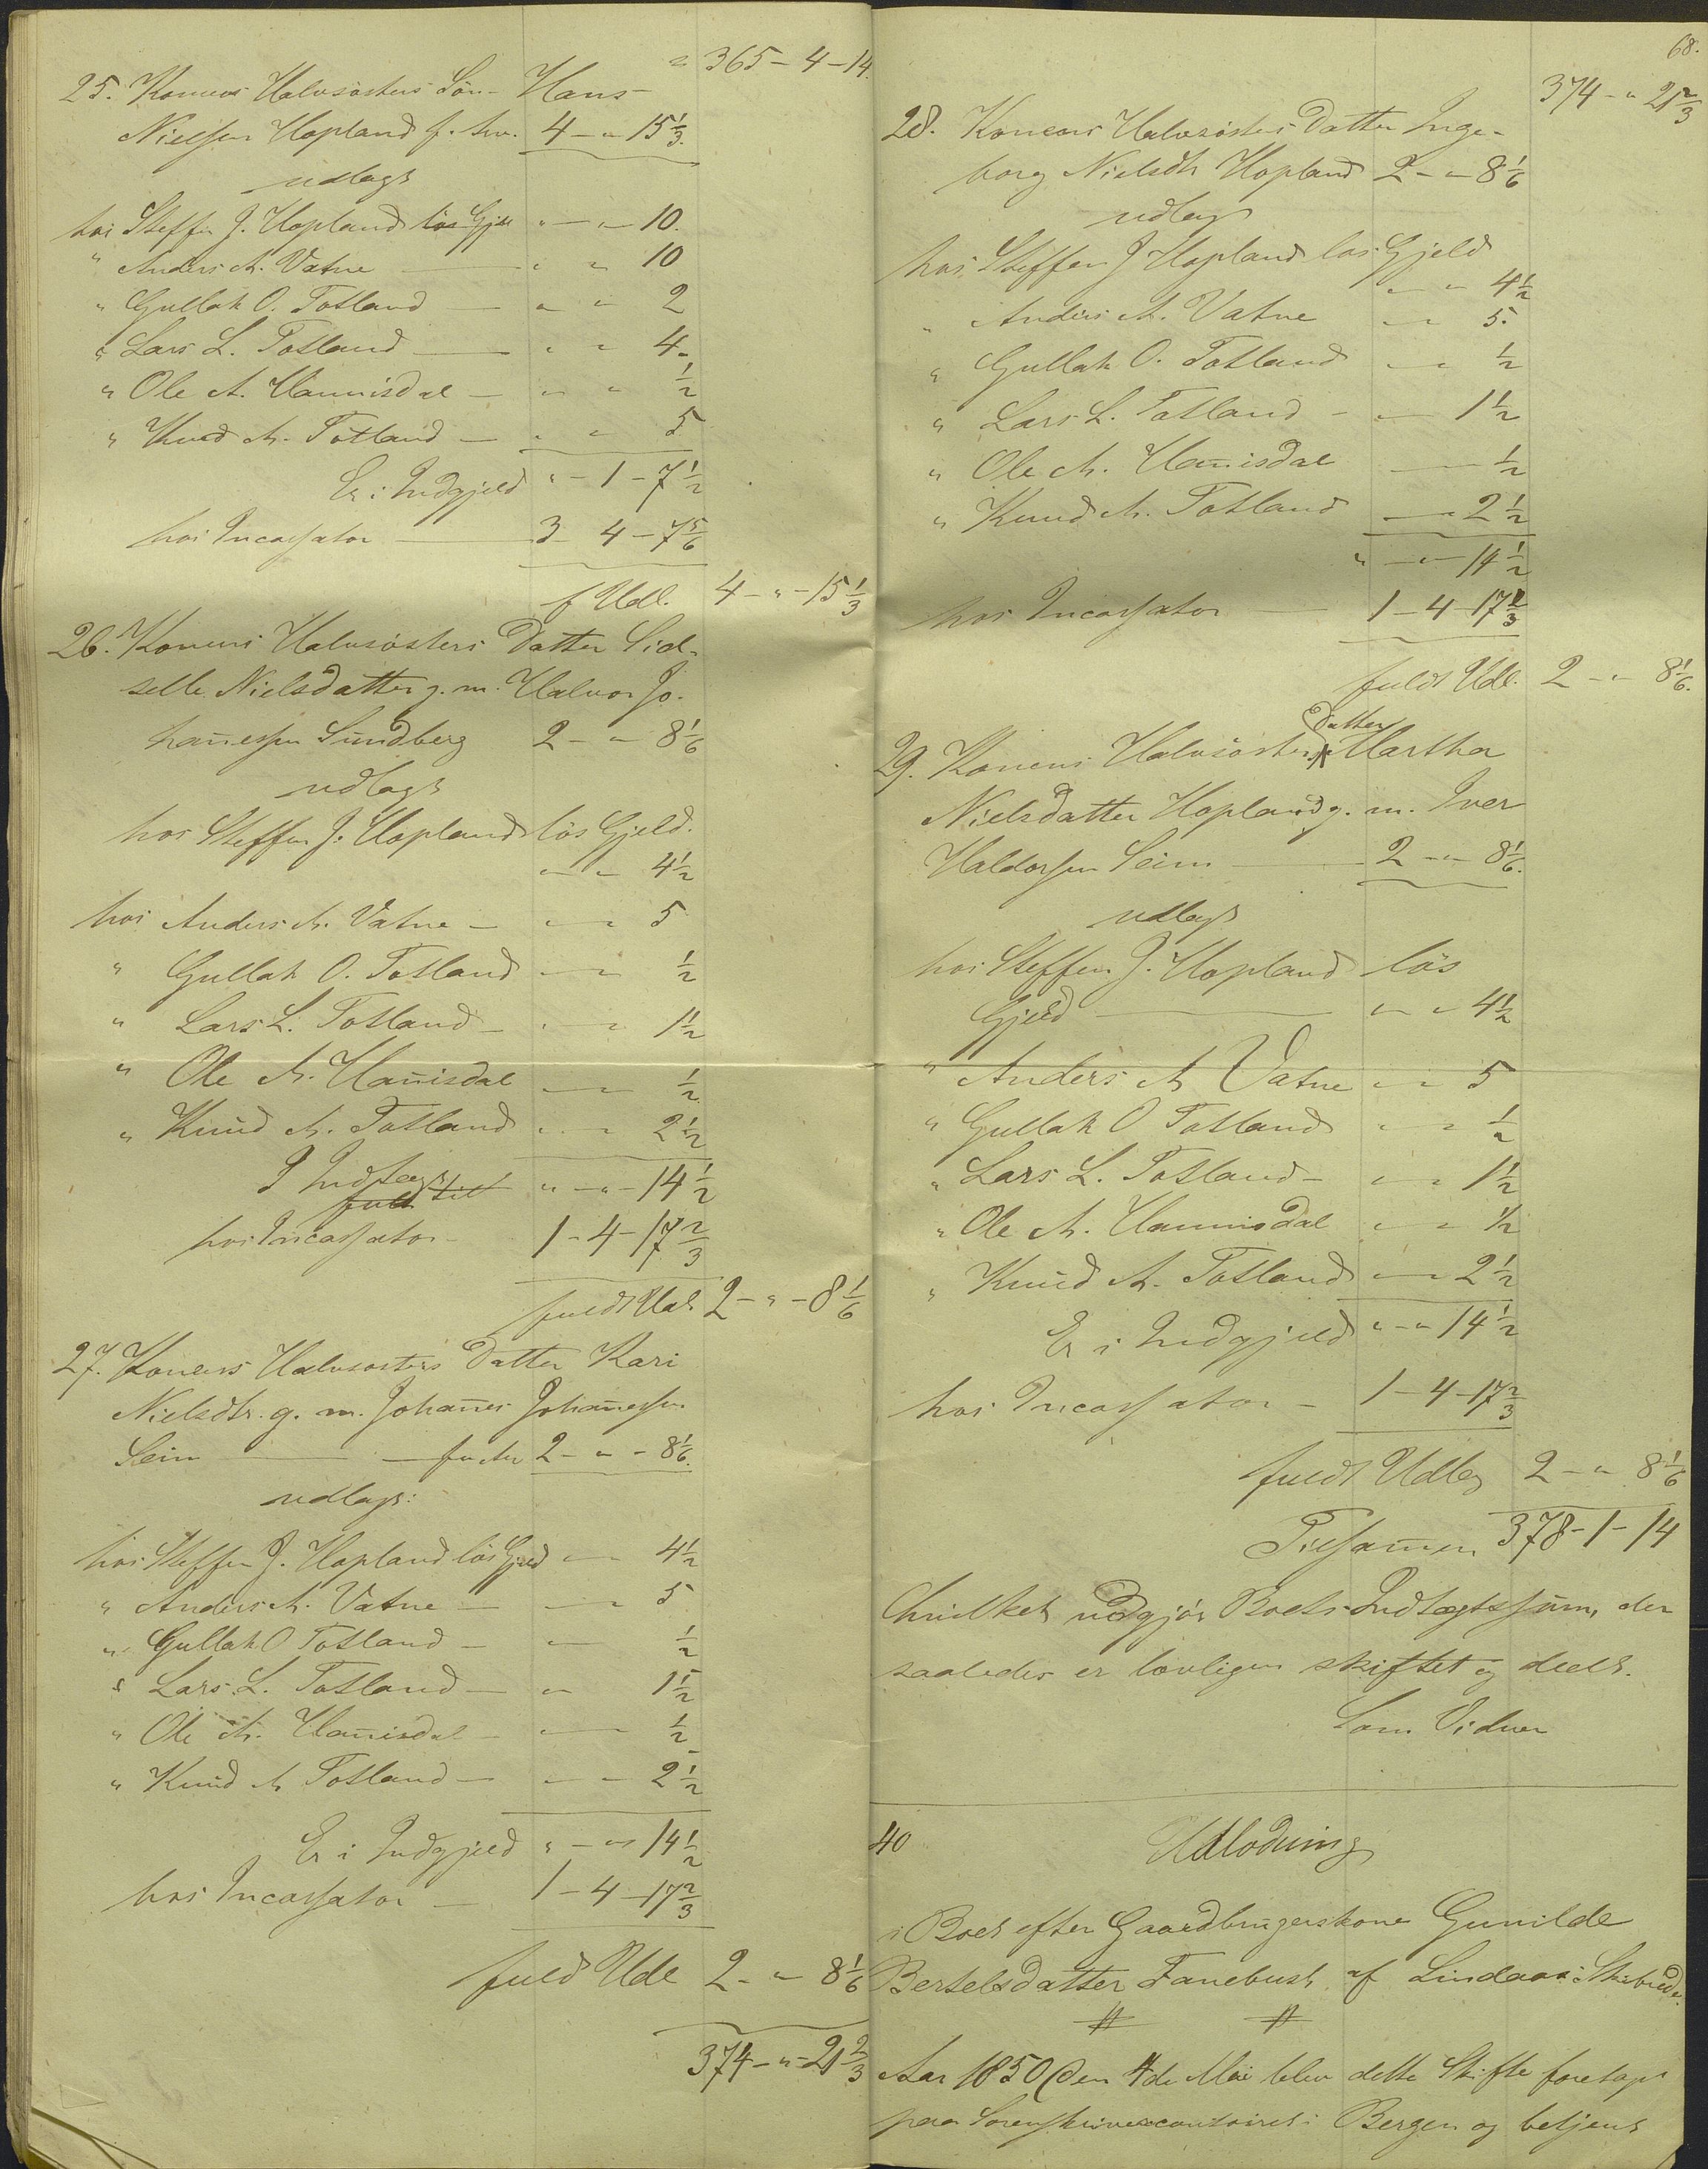 " 365 - 4 - 14.
25. Konens Halvsösters Sön - Hans
Nielsen Hopland f. Arv. 4 - " 15 1/3.
udlagt
hos Steffen J. Hopland lös Gjeld " - " - 10.
" Anders A. Vatne — " " 10
" Gullak O. Totland — " " 2
" Lars L. Totland — " " 4 -
" Ole A. Hannisdal — " " 1/2
" Knud A. Totland — " " 5
Er i Indgjeld " - 1 - 7 1/2
hos Incassator — 3 4 - 7 5/6
f Udl. 4 - " - 15 1/3
26. Konens Halvsösters Datter Sid-
selle Nielsdatter g. m. Halvor Jo-
han̄esen Sundberg 2 - " 8 1/6
udlagt
hos Steffen J. Hopland lös Gjeld.
" - " 4 1/2
hos Anders A. Vatne — " - " 5
" Gullak O. Totland " - " 1/2
" Lars L. Totland — " - " 1 1/2
" Ole A. Han̄isdal " - " 1/2
" Knud A. Totland " - " 2 1/2
I Indtægt " - " - 14 1/2
hos Incassator - 1 - 4 - 17 2/3
fuldt Udl 2 - " - 8 1/6
27. Konens Halvsösters Datter Kari
Nielsdtr. g. m. Johan̄es Johan̄esen
Seim — for Arv 2 - " - 8 1/6.
udlagt:
hos Steffen J. Hopland lös Gjeld " - 4 1/2
" Anders A. Vatne — " - 5
" Gullak O Totland — " 1/2
" Lars L. Totland — " 1 1/2
" Ole A. Han̄isdal — " - 1/2
" Knud A Totland — " - " 2 1/2
Er i Indgjeld " - " 14 1/2
hos Incassator — 1 - 4 - 17 2/3
fuld Udl 2 - " 8 1/6
374 - " - 21 2/3
68.
374 - " 21 2/3
28. Konens Halvsösters Datter Inge-
borg Nielsdtr Hopland 2 - " 8 1/6
udlagt
hos Steffen J Hopland lös Gjeld
" - " 4 1/2
" Anders A. Vatne " - " 5.
" Gullak O. Totland " - " 1/2
" Lars L. Totland - " - 1 1/2
" Ole A. Han̄isdal — 1/2
" Knud A. Totland — " 2 1/2
" - " - 14 1/2
hos Incassator — 1 - 4 - 17 2/3
fuldt Udl. 2 - " 8 1/6.
Datter
29. Konens Halvsösters Martha
Nielsdatter Hopland g. m. Iver
Haldorsen Seim — 2 - " - 8 1/6.
udlagt
hos Steffen J. Hopland lös
Gjeld — " - " 4 1/2
" Anders A Vatne " - " 5
" Gullak O Totland " " 1/2
" Lars L. Totland - " - " 1 1/2
" Ole A. Hannisdal " - " 1/2
" Knud A. Totland " - " 2 1/2
Er i Indgjeld " - " 14 1/2
hos Incassator - 1 - 4 - 17 2/3
fuldt Udlæg 2 - " 8 1/6
Tilsam̄en 378 - 1 - 14
hvilket udgjör Boets Indtægtssum, der
saaledes er lovligen skiftet og deelt.
Som Vidner
40 Udlodning
i Boet efter Gaardbrugerskone Gunilde
Bertelsdatter Fanebust af Lindaas Skibrede.
Aar 1850 den 4de Mai blev dette Skifte foretaget
paa Sorenskrivercontoiret i Bergen og betjent